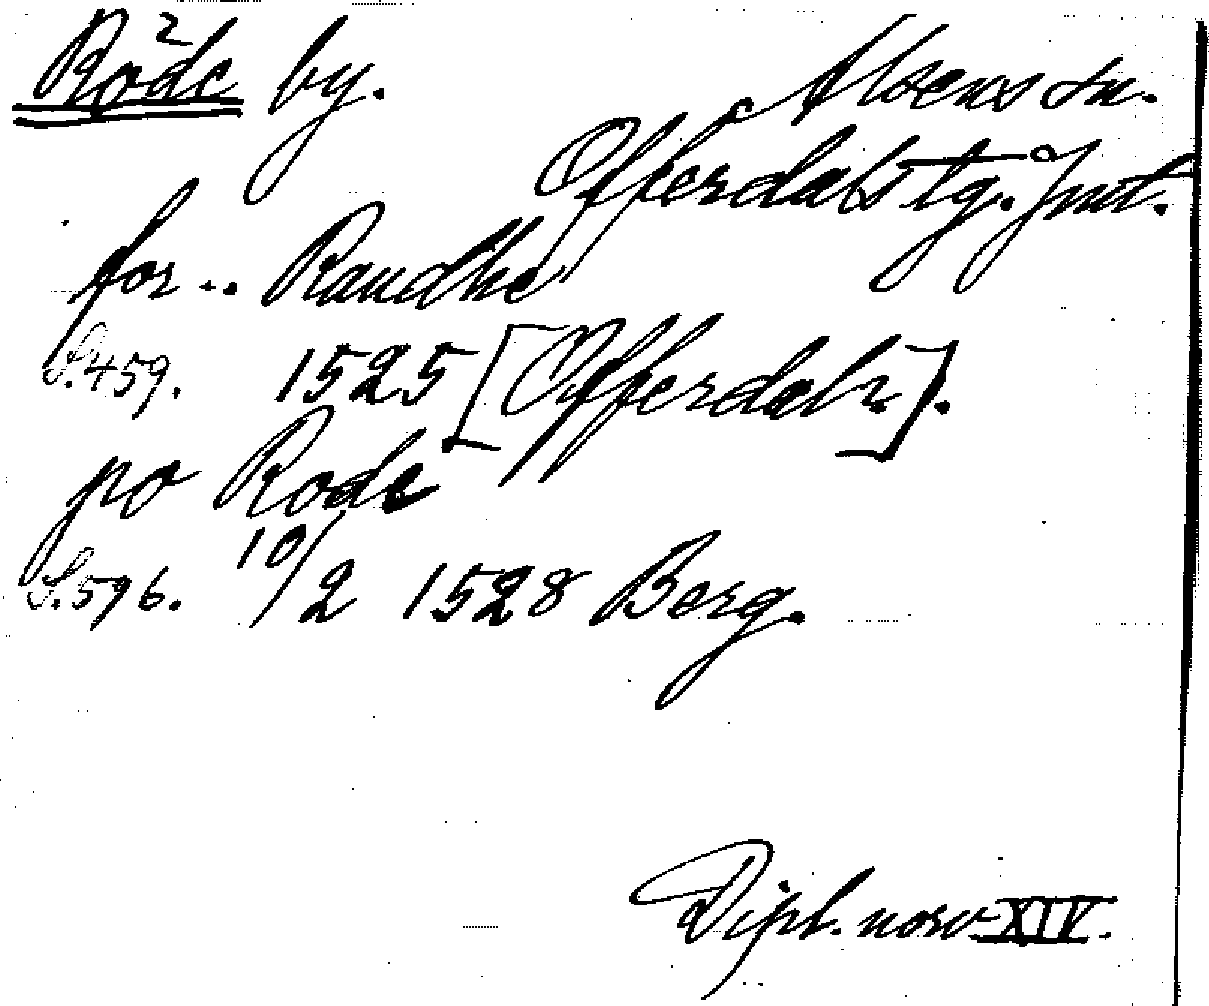 Röde by. Alsens sn.
Offerdals tg. Jmt.
for .. Raudhe
S. 459. 1525 [Offerdal].
po Rode
S. 596. 10/2 1528 Berg.
Dipl. norv XIV.